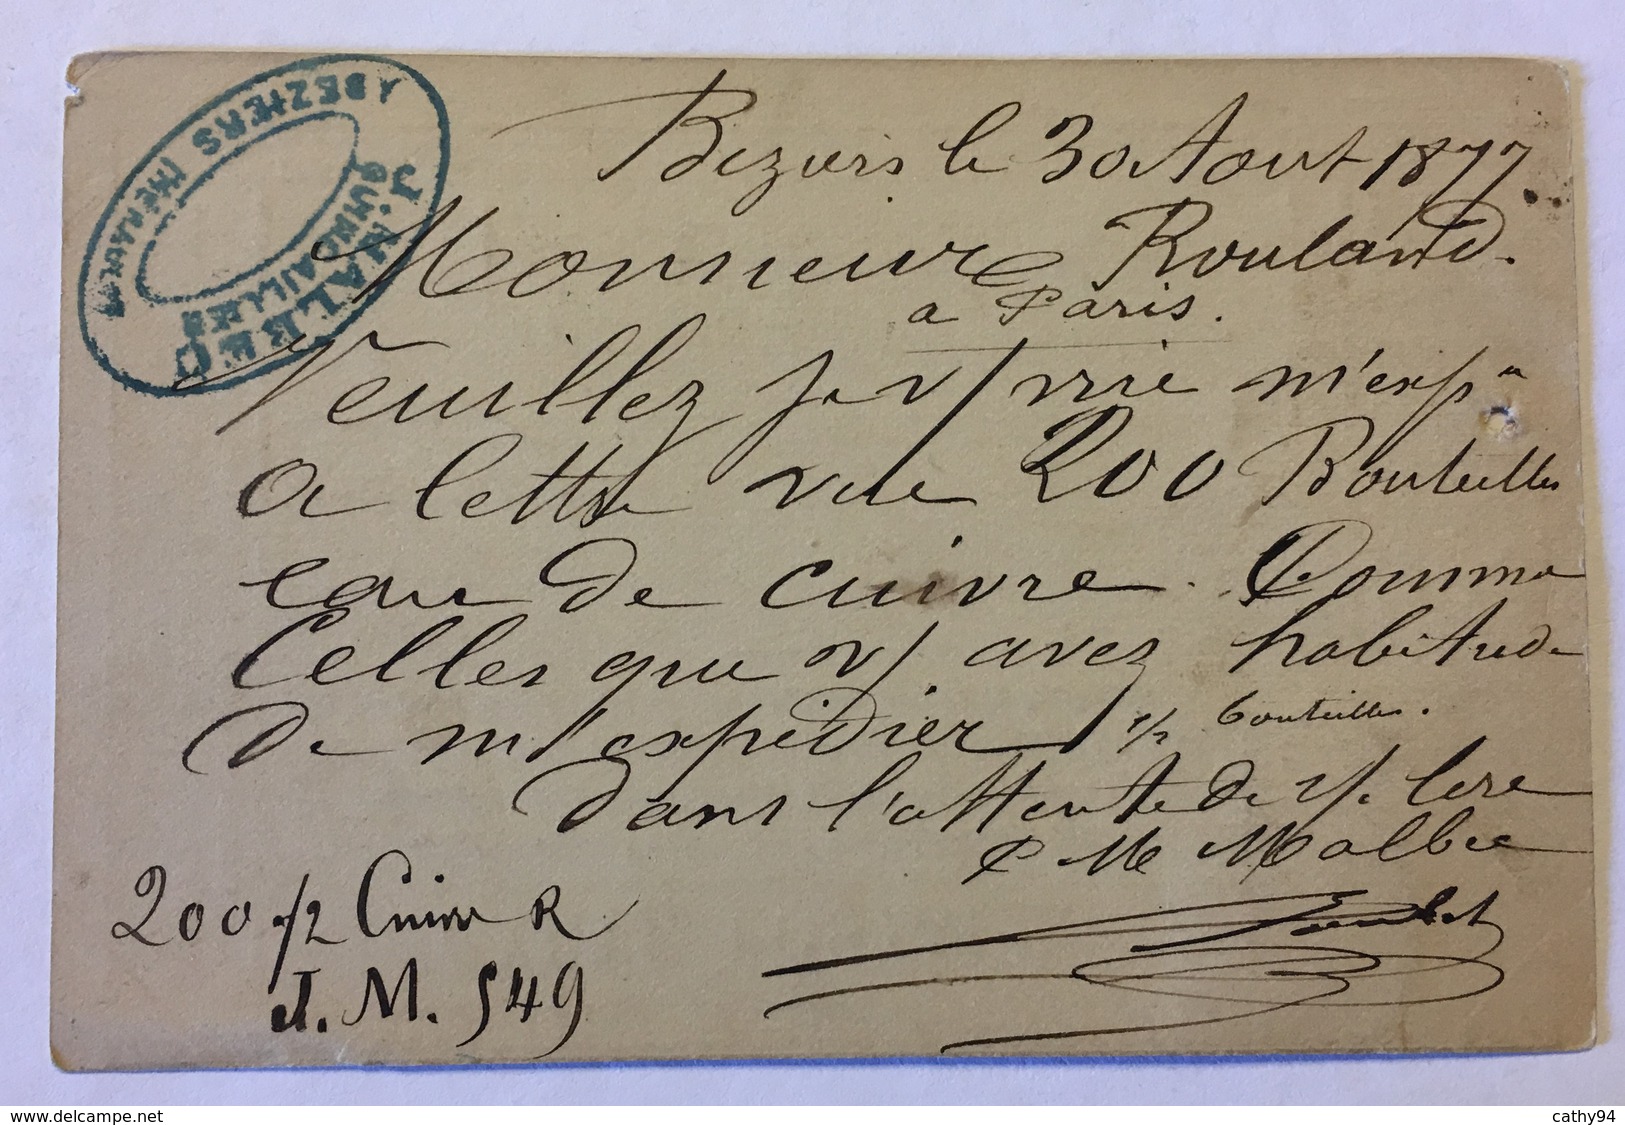 J. MALBEC
QUINCAILLER
A BEZIERS (HÉRAULT)
Beziers le 30 Aout 1877
Monsieur Rouland.
a Paris.
Veuillez je v/ prie m'exp
a lettre vue 200 Bouteilles
eau de cuivre. Comme
Celles que v/ avez habitude
de m'expedier 1/2 bouteilles.
dans l'attente de v/
P. Malbec
200 1/2 Cuivre R
J. M. 549
delcampe.net
cathy94